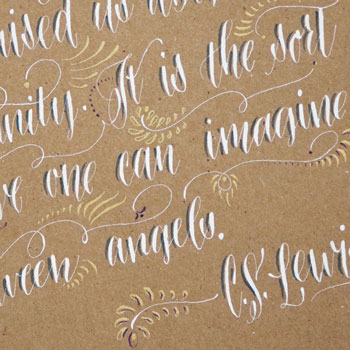 aised its
nity. It is the sort
ve one can imagine
ween angels.
C.S. Lewi